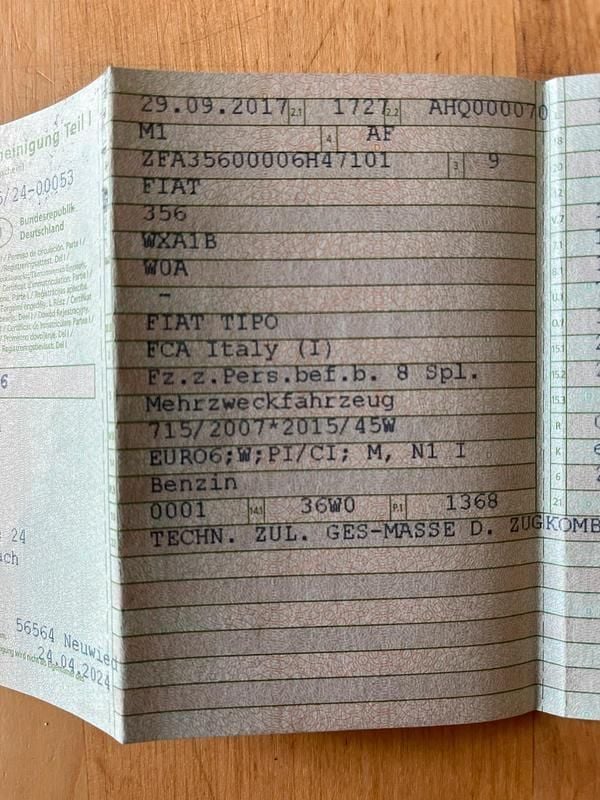 einigung Teil I
/24-00053
Bundesrepublik
Deutschland
6
24
ach
56564 Neuwied
24.04.2024
29.09.2017 2.1 1727 2.2 AHQ000070
M1 4 AF
ZFA35600006H47101 3 9
FIAT
356
WXA1B
W0A
-
FIAT TIPO
FCA Italy (I)
Fz.z.Pers.bef.b. 8 Spl.
Mehrzweckfahrzeug
715/2007*2015/45W
EURO6;W;PI/CI; M, N1 I
Benzin
0001 14.1 36W0 P.1 1368
TECHN. ZUL. GES-MASSE D. ZUGKOMB
18
20
12
V.7
7.1
8.1
U.1
O.1
15.1
15.2
15.3
R
K
6
21